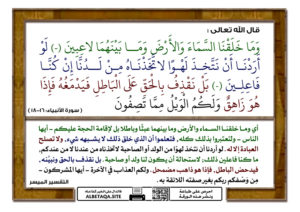 قال الله تعالى :
وَمَا خَلَقْنَا السَّمَاءَ وَالْأَرْضَ وَمَا بَيْنَهُمَا لَاعِبِينَ (١٦) لَوْ
أَرَدْنَا أَنْ نَتَّخِذَ لَهْوًا لَاتَّخَذْنَاهُ مِنْ لَدُنَّا إِنْ كُنَّا
فَاعِلِينَ (١٧) بَلْ نَقْذِفُ بِالْحَقِّ عَلَى الْبَاطِلِ فَيَدْمَغُهُ فَإِذَا
هُوَ زَاهِقٌ وَلَكُمُ الْوَيْلُ مِمَّا تَصِفُونَ
( سورة الأنبياء: ١٦-١٨ )
أي وما خلقنا السماء والأرض وما بينهما عبثًا وباطلا بل لإقامة الحجة عليكم - أيها
الناس - ولتعتبروا بذلك كله، فتعلموا أن الذي خلق ذلك لا يشبهه شيء، ولا تصلح
العبادة إلا له. لو أردنا أن نتخذ لهوًا من الولد أو الصاحبة لاتخذناه من عندنا لا من عندكم،
ما كنا فاعلين ذلك؛ لاستحالة أن يكون لنا ولد أو صاحبة. بل نقذف بالحق ونبيِّنه،
فيدحض الباطل، فإذا هو ذاهب مضمحل. ولكم العذاب في الآخرة - أيها المشركون -
مِن وَصْفكم ربكم بغير صفته اللائقة به.
التفسير الميسر
ALBETAQA.SITE